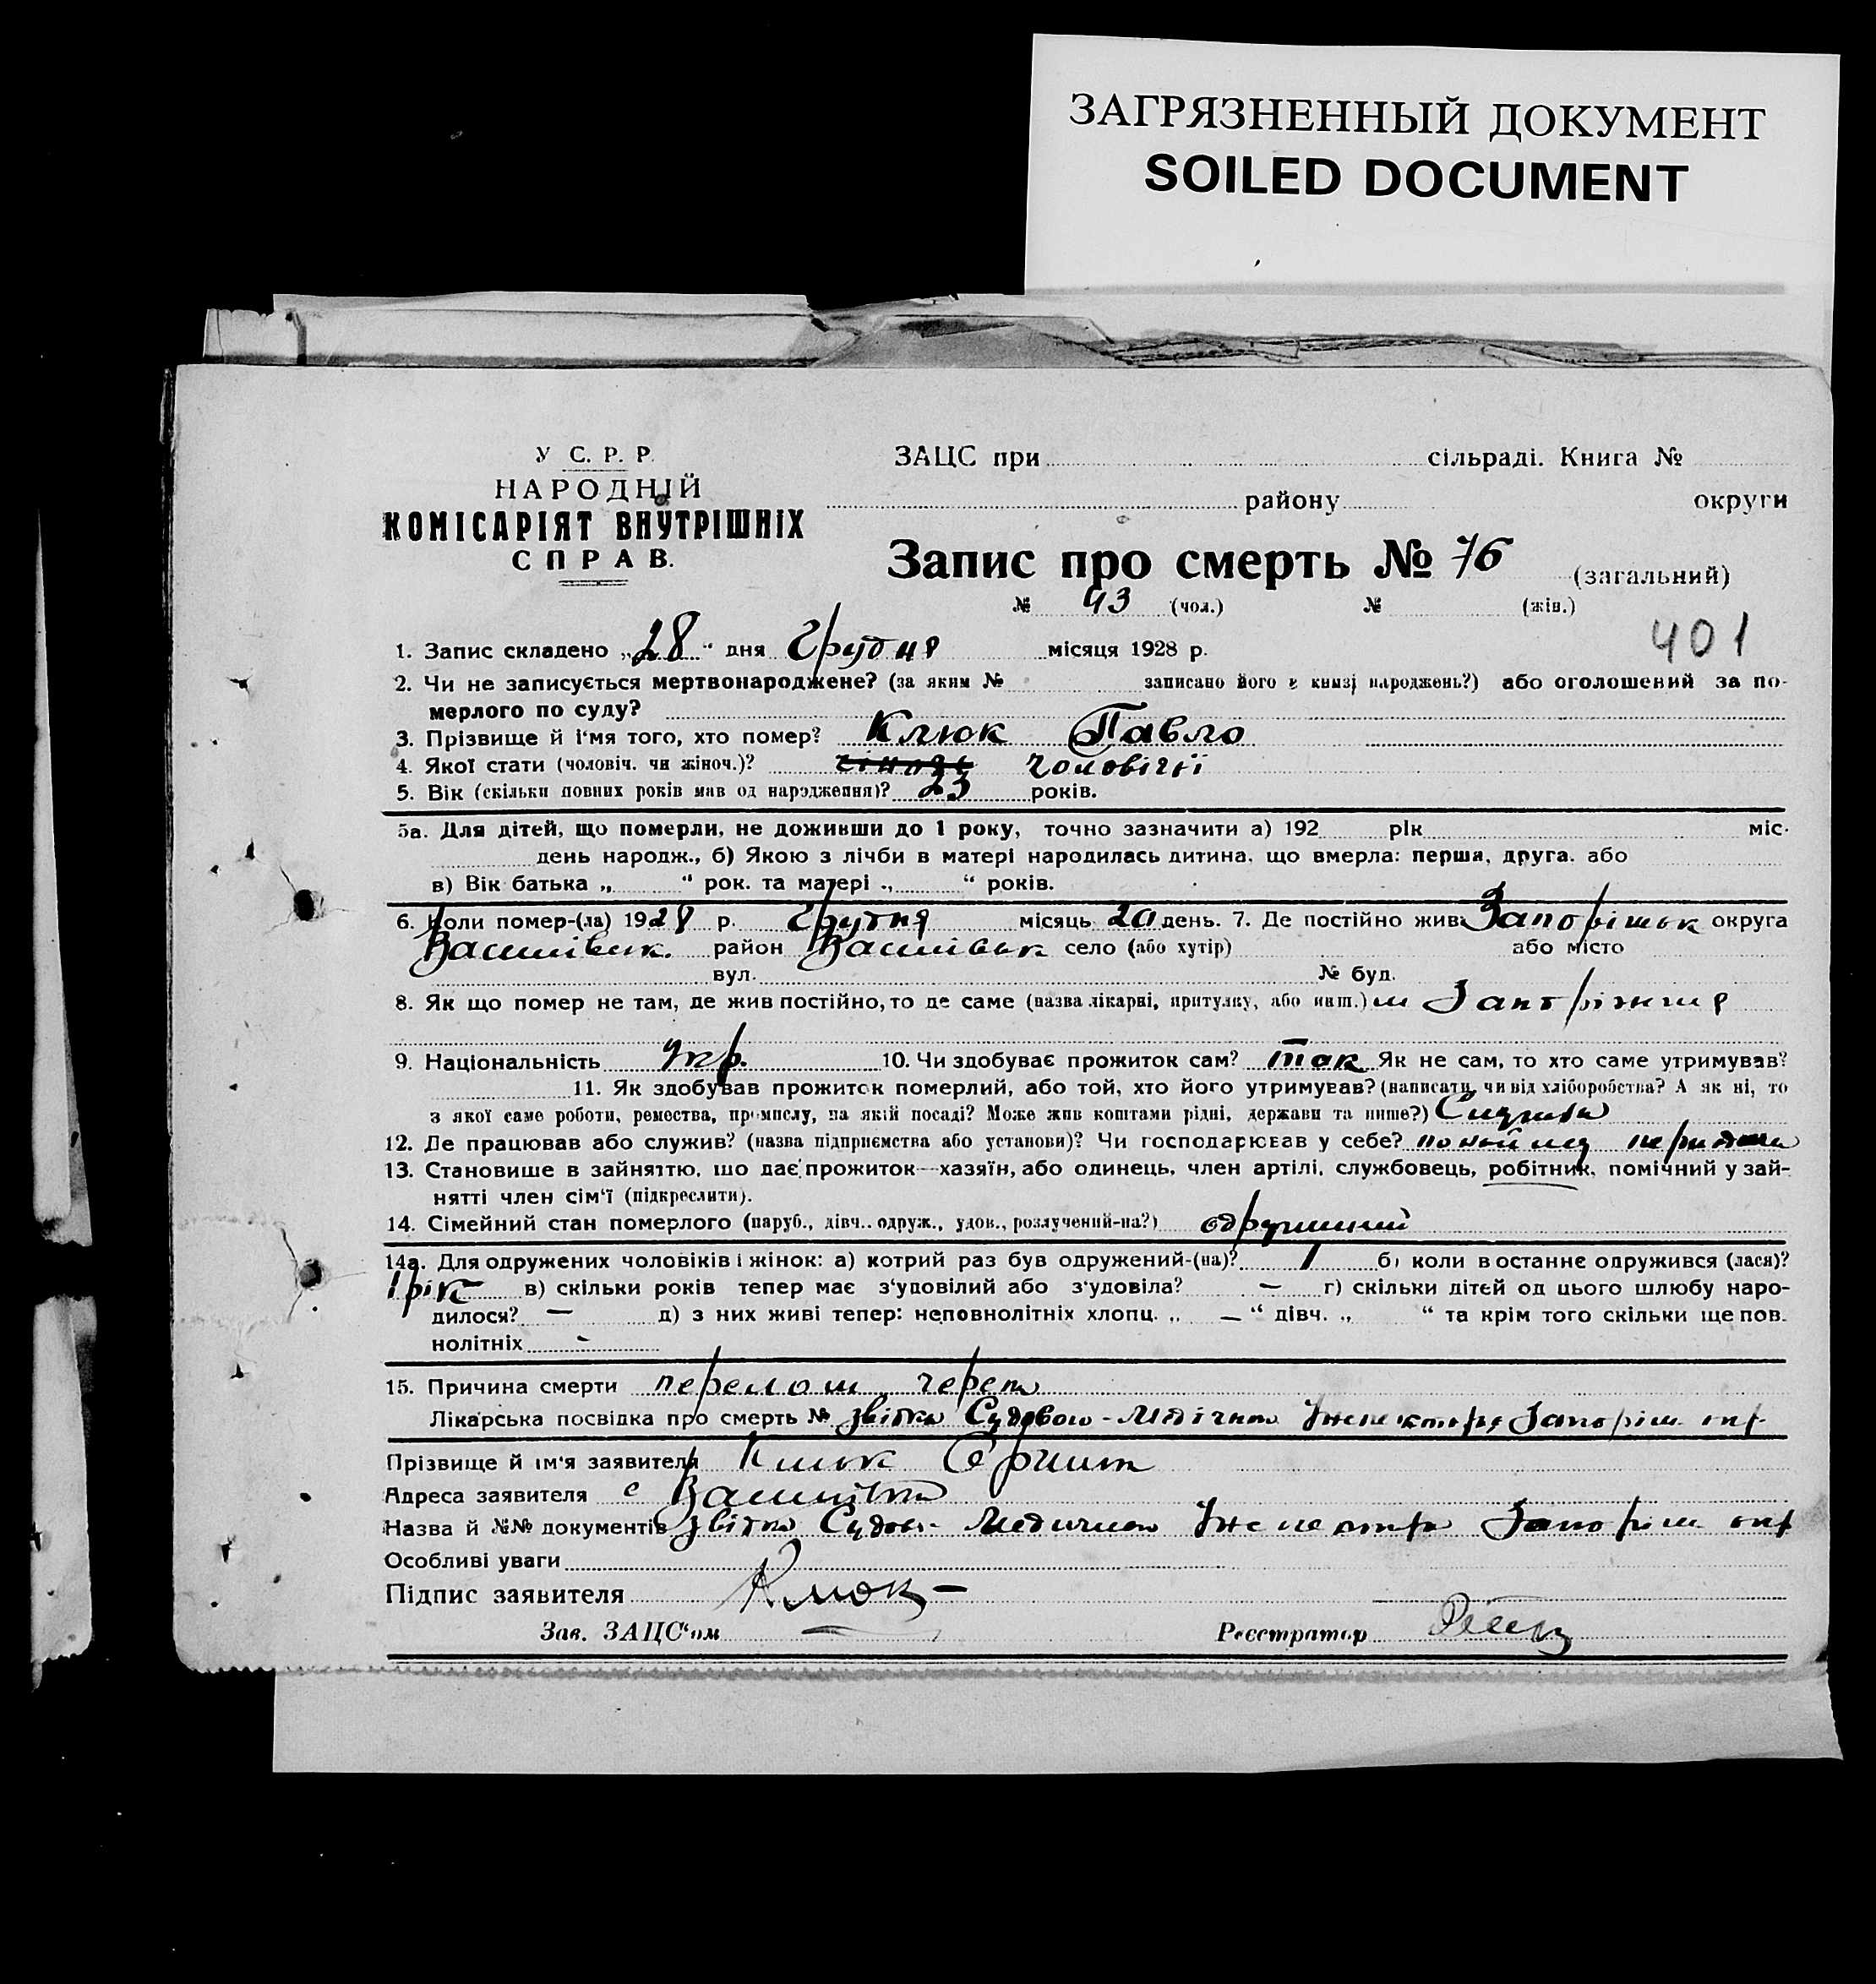 ЗАГРЯЗНЕННЫЙ ДОКУМЕНТ
SOILED DOCUMENT
У С. Р. Р.
НАРОДНІЙ
КОМІСАРІЯТ ВНУТРІШНІХ
СПРАВ.
ЗАЦС при сільраді. Книга №
району округи
Запис про смерть № 76 (загальний)
№ 43 (чол.) № (жін.)
401
1. Запис складено „28" дня Грудня місяця 1928 р.
2. Чи не записується мертвонароджене? (за яким № записано його в книзі народжень?) або оголошений за по-
мерлого по суду?
3. Прізвище й і'мя того, хто помер? Клюк Павло
4. Якої стати (чоловіч. чи жіноч.)? чоловічії
5. Вік (скільки повних років мав од народження)? 23 років.
5а. Для дітей, що померли, не доживши до 1 року, точно зазначити а) 192 рік міс.
день народж., б) Якою з лічби в матері народилась дитина, що вмерла: перша, друга. або
в) Вік батька „ " рок. та матері „ " років.
6. Коли помер-(ла) 1928 р. Грудня місяць 20 день. 7. Де постійно жив Запоріжьк округа
Василівськ. район Василівськ село (або хутір) або місто
вул. № буд.
8. Як що помер не там, де жив постійно, то де саме (назва лікарні, притулку, або инш.) м Запоріжжя
9. Національність Укр. 10. Чи здобуває прожиток сам? так Як не сам, то хто саме утримував?
11. Як здобував прожиток померлий, або той, хто його утримував? (написати, чи від хліборобства? А як ні, то
з якої саме роботи, ремества, промислу, на якій посаді? Може жив коштами рідні, держави та инше?)
12. Де працював або служив? (назва підприємства або установи)? Чи господарював у себе?
13. Становише в зайняттю, що дає прожиток—хазяїн, або одинець, член артілі, службовець, робітник, помічний у зай-
нятті член сім'ї (підкреслити).
14. Сімейний стан померлого (паруб., дівч., одруж., удов., розлучений-на?) одружений
14а. Для одружених чоловіків і жінок: а) котрий раз був одружений-(на)? 1 б) коли в останнє одружився (лася)?
1 рік в) скільки років тепер має з'удовілий або з'удовіла? — г) скільки дітей од цього шлюбу наро-
дилося? — д) з них живі тепер: неповнолітніх хлопц. „ — " дівч. „ " та крім того скільки ще пов.
нолітніх -
15. Причина смерти перелом череп
Лікарська посвідка про смерть № звітка Судового-Медічного Інспектора Запоріж окр
Прізвище й ім'я заявителя Клюк
Адреса заявителя с Василівка
Назва й №№ документів звітка Судово- Медичного Інспектора Запоріж окр
Особливі уваги
Підпис заявителя Клюк—
Зав. ЗАЦС'ом Реєстратор